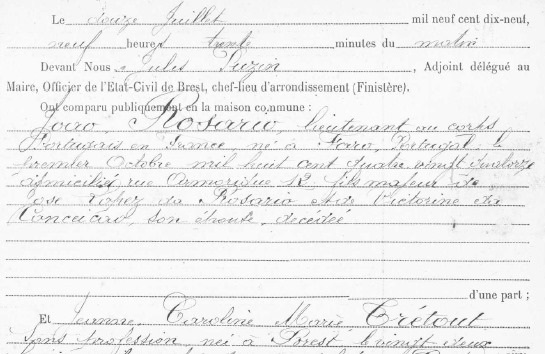 Le douze Juillet mil neuf cent dix-neuf,
neuf heures trente minutes du matin
Devant Nous, Jules Suzin, Adjoint délégué au
Maire, Officier de l'Etat-Civil de Brest, chef-lieu d'arrondissement (Finistère).
Ont comparu publiquement en la maison commune :
Joao, Rosario, lieutenant au corps
Portugais en France né à Faro, Portugal, le
premier Octobre mil huit cent quatre vingt quatorze
domicilié rue Armorique 12 fils majeur de
José Lopez da Rosario et de Victorine da
Conceicao, son épouse, décédée
d'une part ;
Et Jeanne Caroline Marie Trétout
sans profession née à Brest le vingt deux